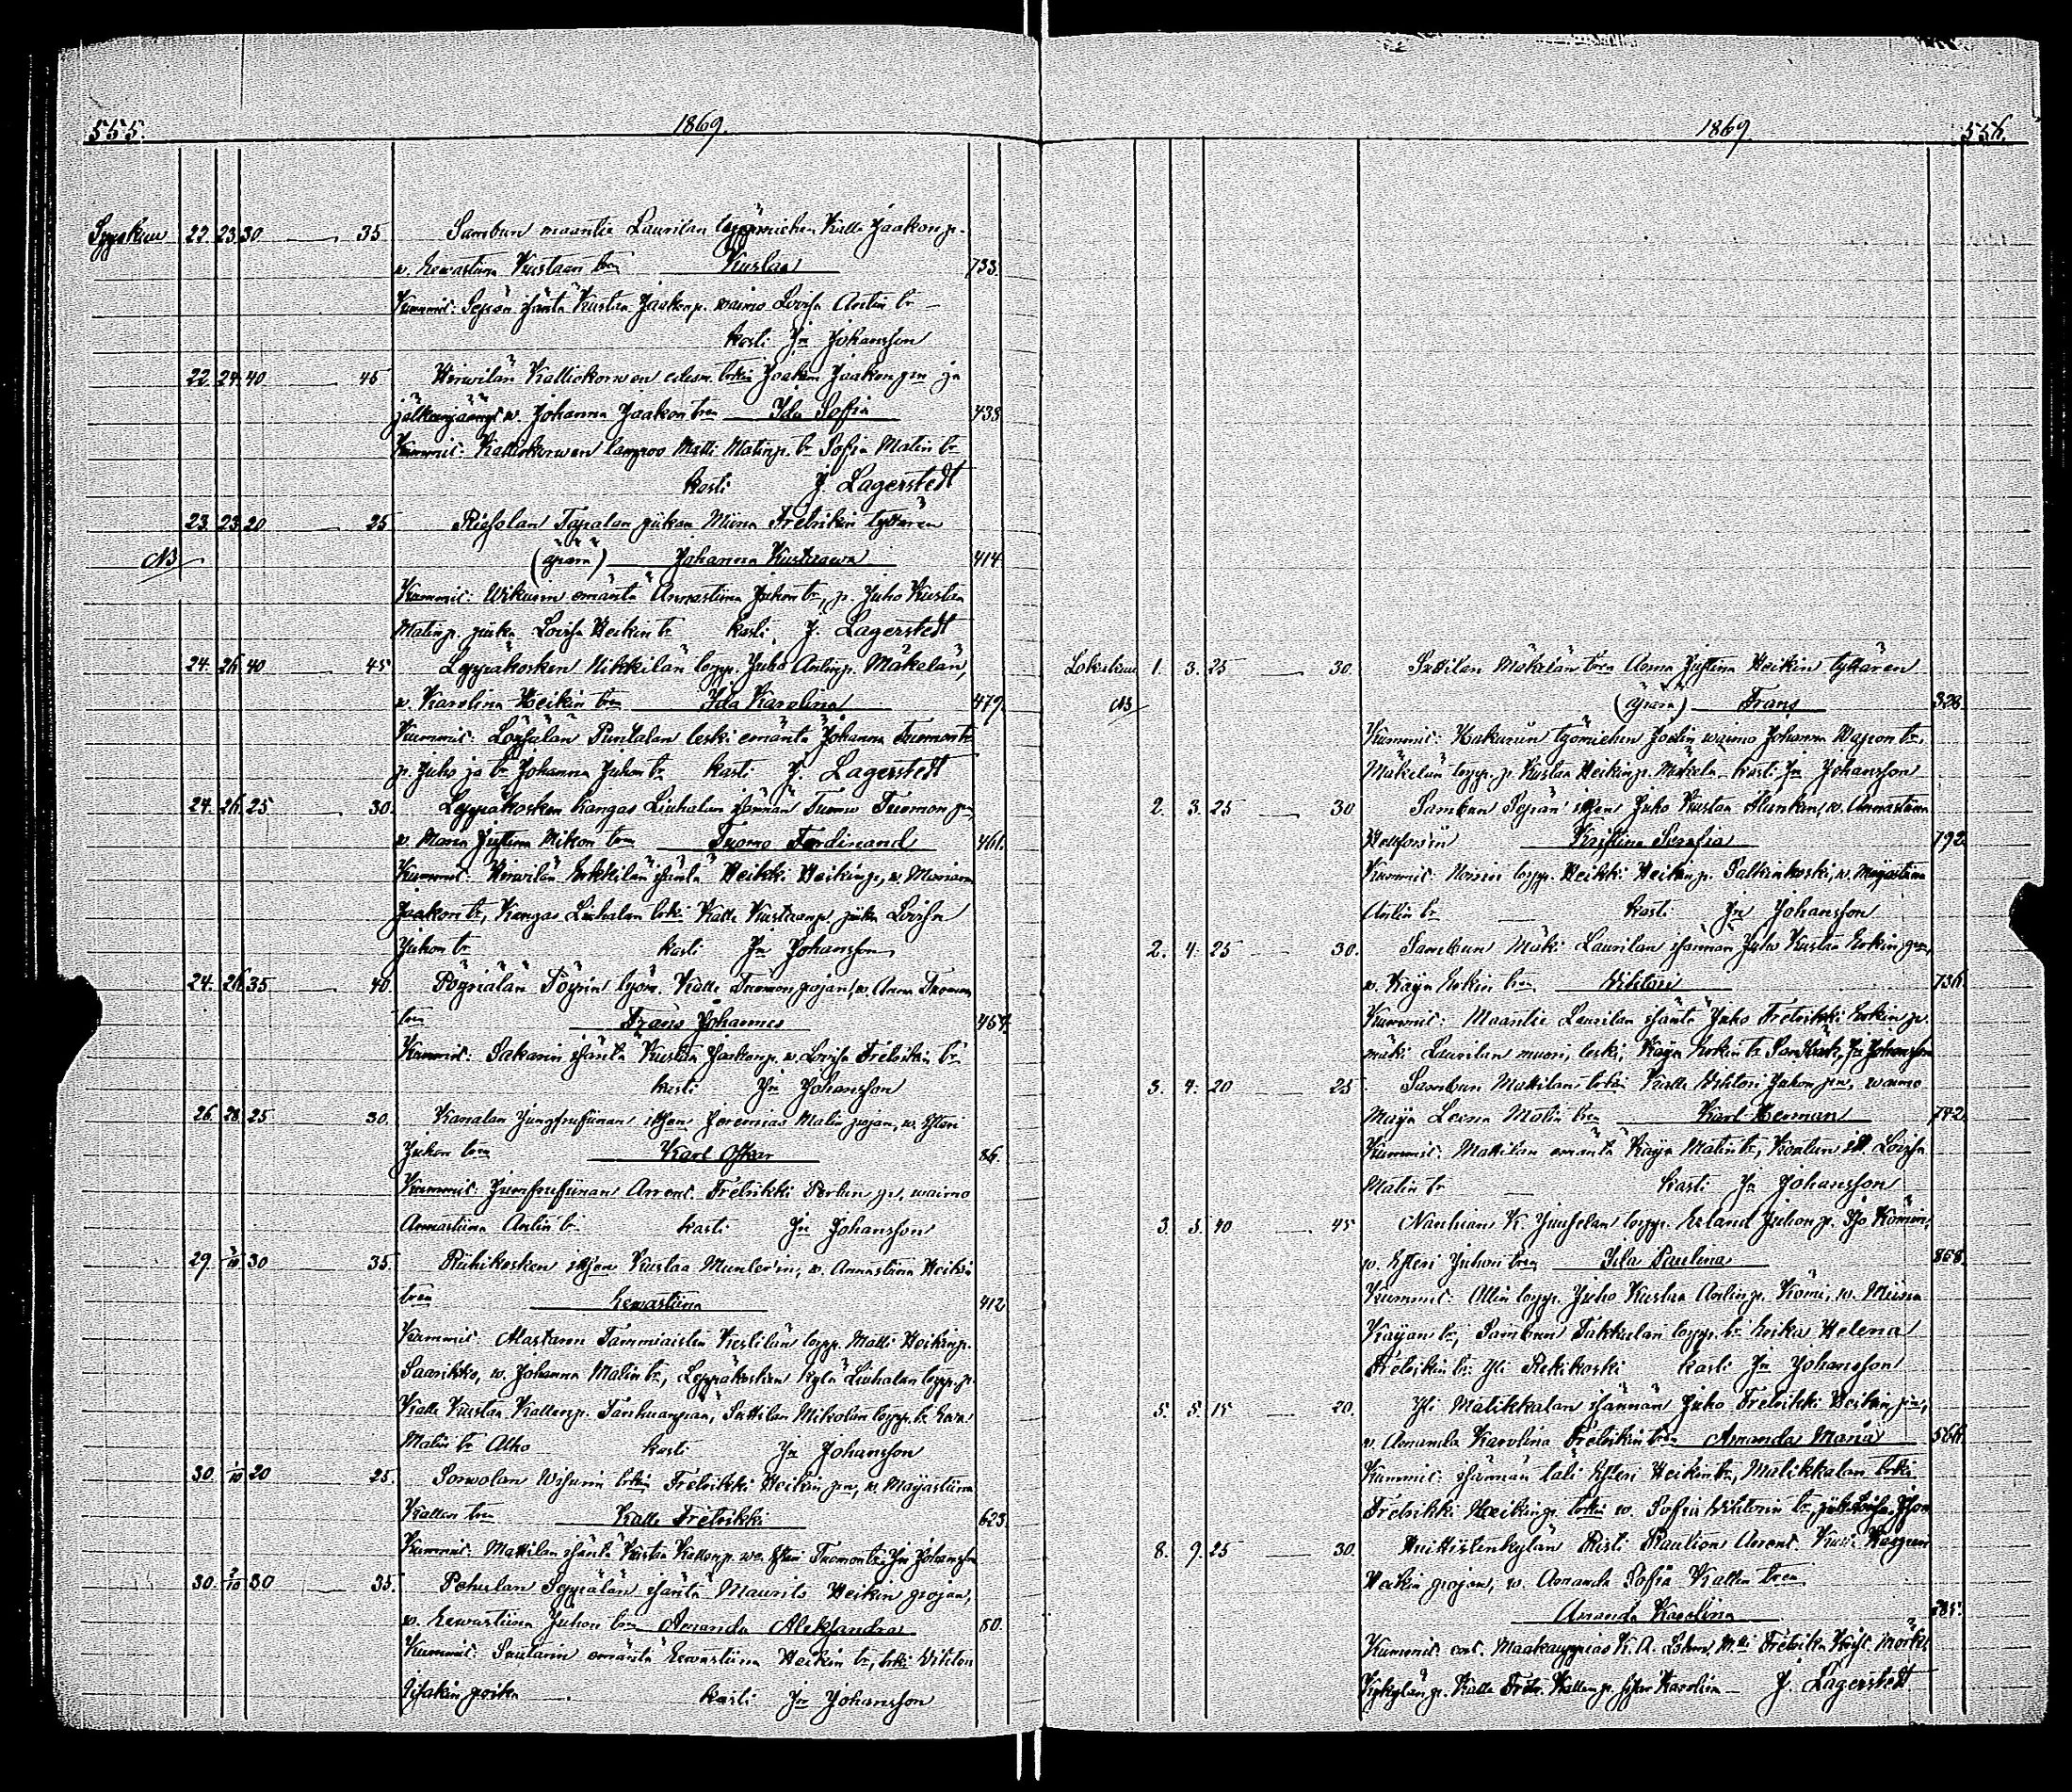 555. 1869.
Syyskuu 22. 23. 30 35 Sambun maantie Laurilan Kalle Jaakon p.
w. Ewastiina Kustaan tren Kustaa 733.
Kummit: Sepän isäntä Kustaa Jaakon p. waimo Lovisa Antin tr
kasti Jn Johansson
22. 24. 40 45 Hirwilän Kalliokorwen edesm. trkin Joakim Jaakon pm ja
jälkeenjäänyt w. Johanna Jaakon tren Ida Soffia 438.
Kummit: Kalliokorwen Matti Matinp. tr Sofia Matin tr
kasti J. Lagerstedt
23. 23. 20 25 Riesolan Tapalan piikan Miina Fredrikin tyttären
NB (äpärä) Johanna Kustaawa 414
Kummit: Wikurin emäntä Annastiina Juhon tr, p. Juho Kustaa
Matin p. piika Lovisa Heikin tr kasti J. Lagerstedt
24. 26. 40 45 Leppäkosken Nikkilän lopp. Juho Antinp. Mäkelän,
w. Karolina Heikin tren Ida Karolina 479.
Kummit: Puntalan leski emäntä Johanna Tuomon tr
p. Juho ja tr Johanna Juhon tr kasti J. Lagerstedt
24. 26. 25 30. Leppäkosken Kangas Liuhalan isännän Tuomo Tuomon pn,
w. Maria Justina Mikon tren Tuomo Ferdinand 461.
Kummit: Hirwilän Erkkilän isäntä Heikki Heikin p., w. Miriam
Jaakon tr, Kangas Liuhalan trki Kalle Kustaanp. piika Lovisa
Juhon tr kasti Jn Johansson
24. 26. 35 40. Pöyriälän Pöyrin työm. Kalle Tuomon pojan, w. Anna Tuomon
tren Frans Johannes 464.
Kummit: Sakarin isäntä Kustaa Jaakon p. w. Lovisa Fredrikin tr
kasti Jn Johansson
26. 28. 25 30. Kanalan Jungfrufiinan itsen Jeremias Matin pojan, w. Esteri
Juhon tren Karl Oskar 86.
Kummit: Arrent. Fredrikki p., waimo
Annastiina Antin tr. kasti Jn Johansson
29. 1/10 30 35. Riihikosken itsen Kustaa w. Annastiina Heikin
tren Ewastiina 412
Kummit: Alastaron Tammiaisten lopp. Matti Heikinp.
Saarikko, w. Johanna Matin tr, Leppäkosken kylä Liuhalan lopp. p.
Kalle Kustaa Kallenp. Suttilan Mikolan lopp. tr Ewa
Matin tr Alho kasti Jn Johansson
30. 1/10 20 25. Sorwolan trkin Fredrikki Heikin pm, w. Maijastiina
Kallen tren Kalle Fredrikki 623
Kummit: Mattilan isäntä Kustaa Kallen p. wo. Esteri Tuomon tr, Jn Johansson
30. 2/10 30 35. Pehulan Seppälän isäntä Maurits Heikin pojan,
w. Ewastiina Juhon tren Amanda Aleksandra 80.
Kummit: Sautarin emäntä Ewastiina Heikin tr, trki Wihtori
Iisakin poika kasti Jn Johansson
1869. 556.
Lokakuu 1. 3. 25 30. Suttilan Mäkelän tren Anna Justina Heikin tyttären
NB (äpärä) Frans 328.
Kummit: työmiehen Joelin waimo Johanna tr.
Mäkelän lopp. p. Kustaa Heikinp. Mäkelä kasti Jn Johansson
2. 3. 25 30 Sambun Sepän itsen Juho Kustaa w. Annastiina
Kristina Serafia 792
Kummit: lopp. Heikki Heikin p. Palkinkoski, w. Maijastiina
Antin tr kasti Jn Johansson
2. 4. 25 30. Sambun Mäki Laurilan isännän Juho Kustaa Erkin pm,
w. Kaija Erkin tren Wihtori 736.
Kummit: Maantie Laurilan isäntä Juho Fredrikki Erkin p.
mäki Laurilan muori, leski, Kaija Erkin tr Jn Johansson
3. 4. 20 25 Sambun Mattilan trkin Kalle Wihtori Juhon pm, waimo
Maija Leena Matin tren Karl Herman 742
Kummit: Mattilan emäntä Kaija Matin tr, itl. Lovisa
Matin tr kasti Jn Johansson
3. 5. 40 45 Nauhian K. lopp. Erland Juhon p. Iso Kömin,
w. Esteri Juhon tren Ida Paulina 868.
Kummit: Ollin lopp. Juho Kustaa Antin p. Kömi, w. Miina
Kaijan tr, Sambun Takkulan lopp. tr Erika Helena
Fredrikin tr: Yli Rekikoski kasti Jn Johansson
5. 5. 15 20. Yli Mälikkälän isännän Juho Fredrikki Heikin pm,
w. Amanda Karolina Fredrikin tren Amanda Maria 566.
Kummit: isännän täti Esteri Heikin tr, Mälikkälän trki
Fredrikki Heikin p. trkin w. Sofia Wihtorin tr,
8. 9. 25 30. Huittistenkylän Risti Raution Arrent.
Heikin pojan, w. Amanda Sofia Kallen tren
Amanda Karolina 285.
Kummit: Maakauppias K. A. Fredrika
p. Kalle Fredr. Kallen p. sisar Karolina J. Lagerstedt